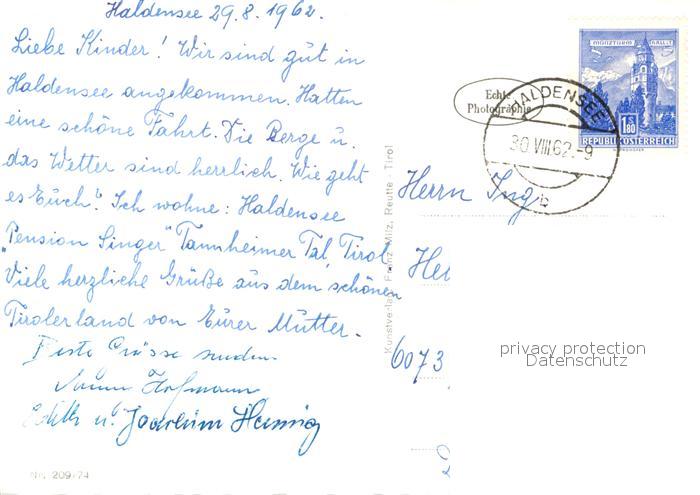 Haldensee 29.8.1962.
Liebe Kinder! Wir sind gut in
Haldensee angekommen. Hatten
eine schöne Fahrt. Die Berge u.
das Wetter sind herrlich. Wie geht
es Euch? Ich wohne: Haldensee
"Pension Singer" Tannheimer Tal, Tirol
Viele herzliche Grüße aus dem schönen
Tirolerland von Eurer Mutter.
Beste Grüsse senden
Hofmann
Edith u. Joachim Hennig
Nr. 209/74
Kunstverlag Franz Milz, Reutte - Tirol
Echte
Photographie
HALDENSEE
30.VIII.62.-9
b
MÜNZTURM HALL i. T.
S 1.80
REPUBLIK ÖSTERREICH
Herrn Ing.
6073
privacy protection
Datenschutz